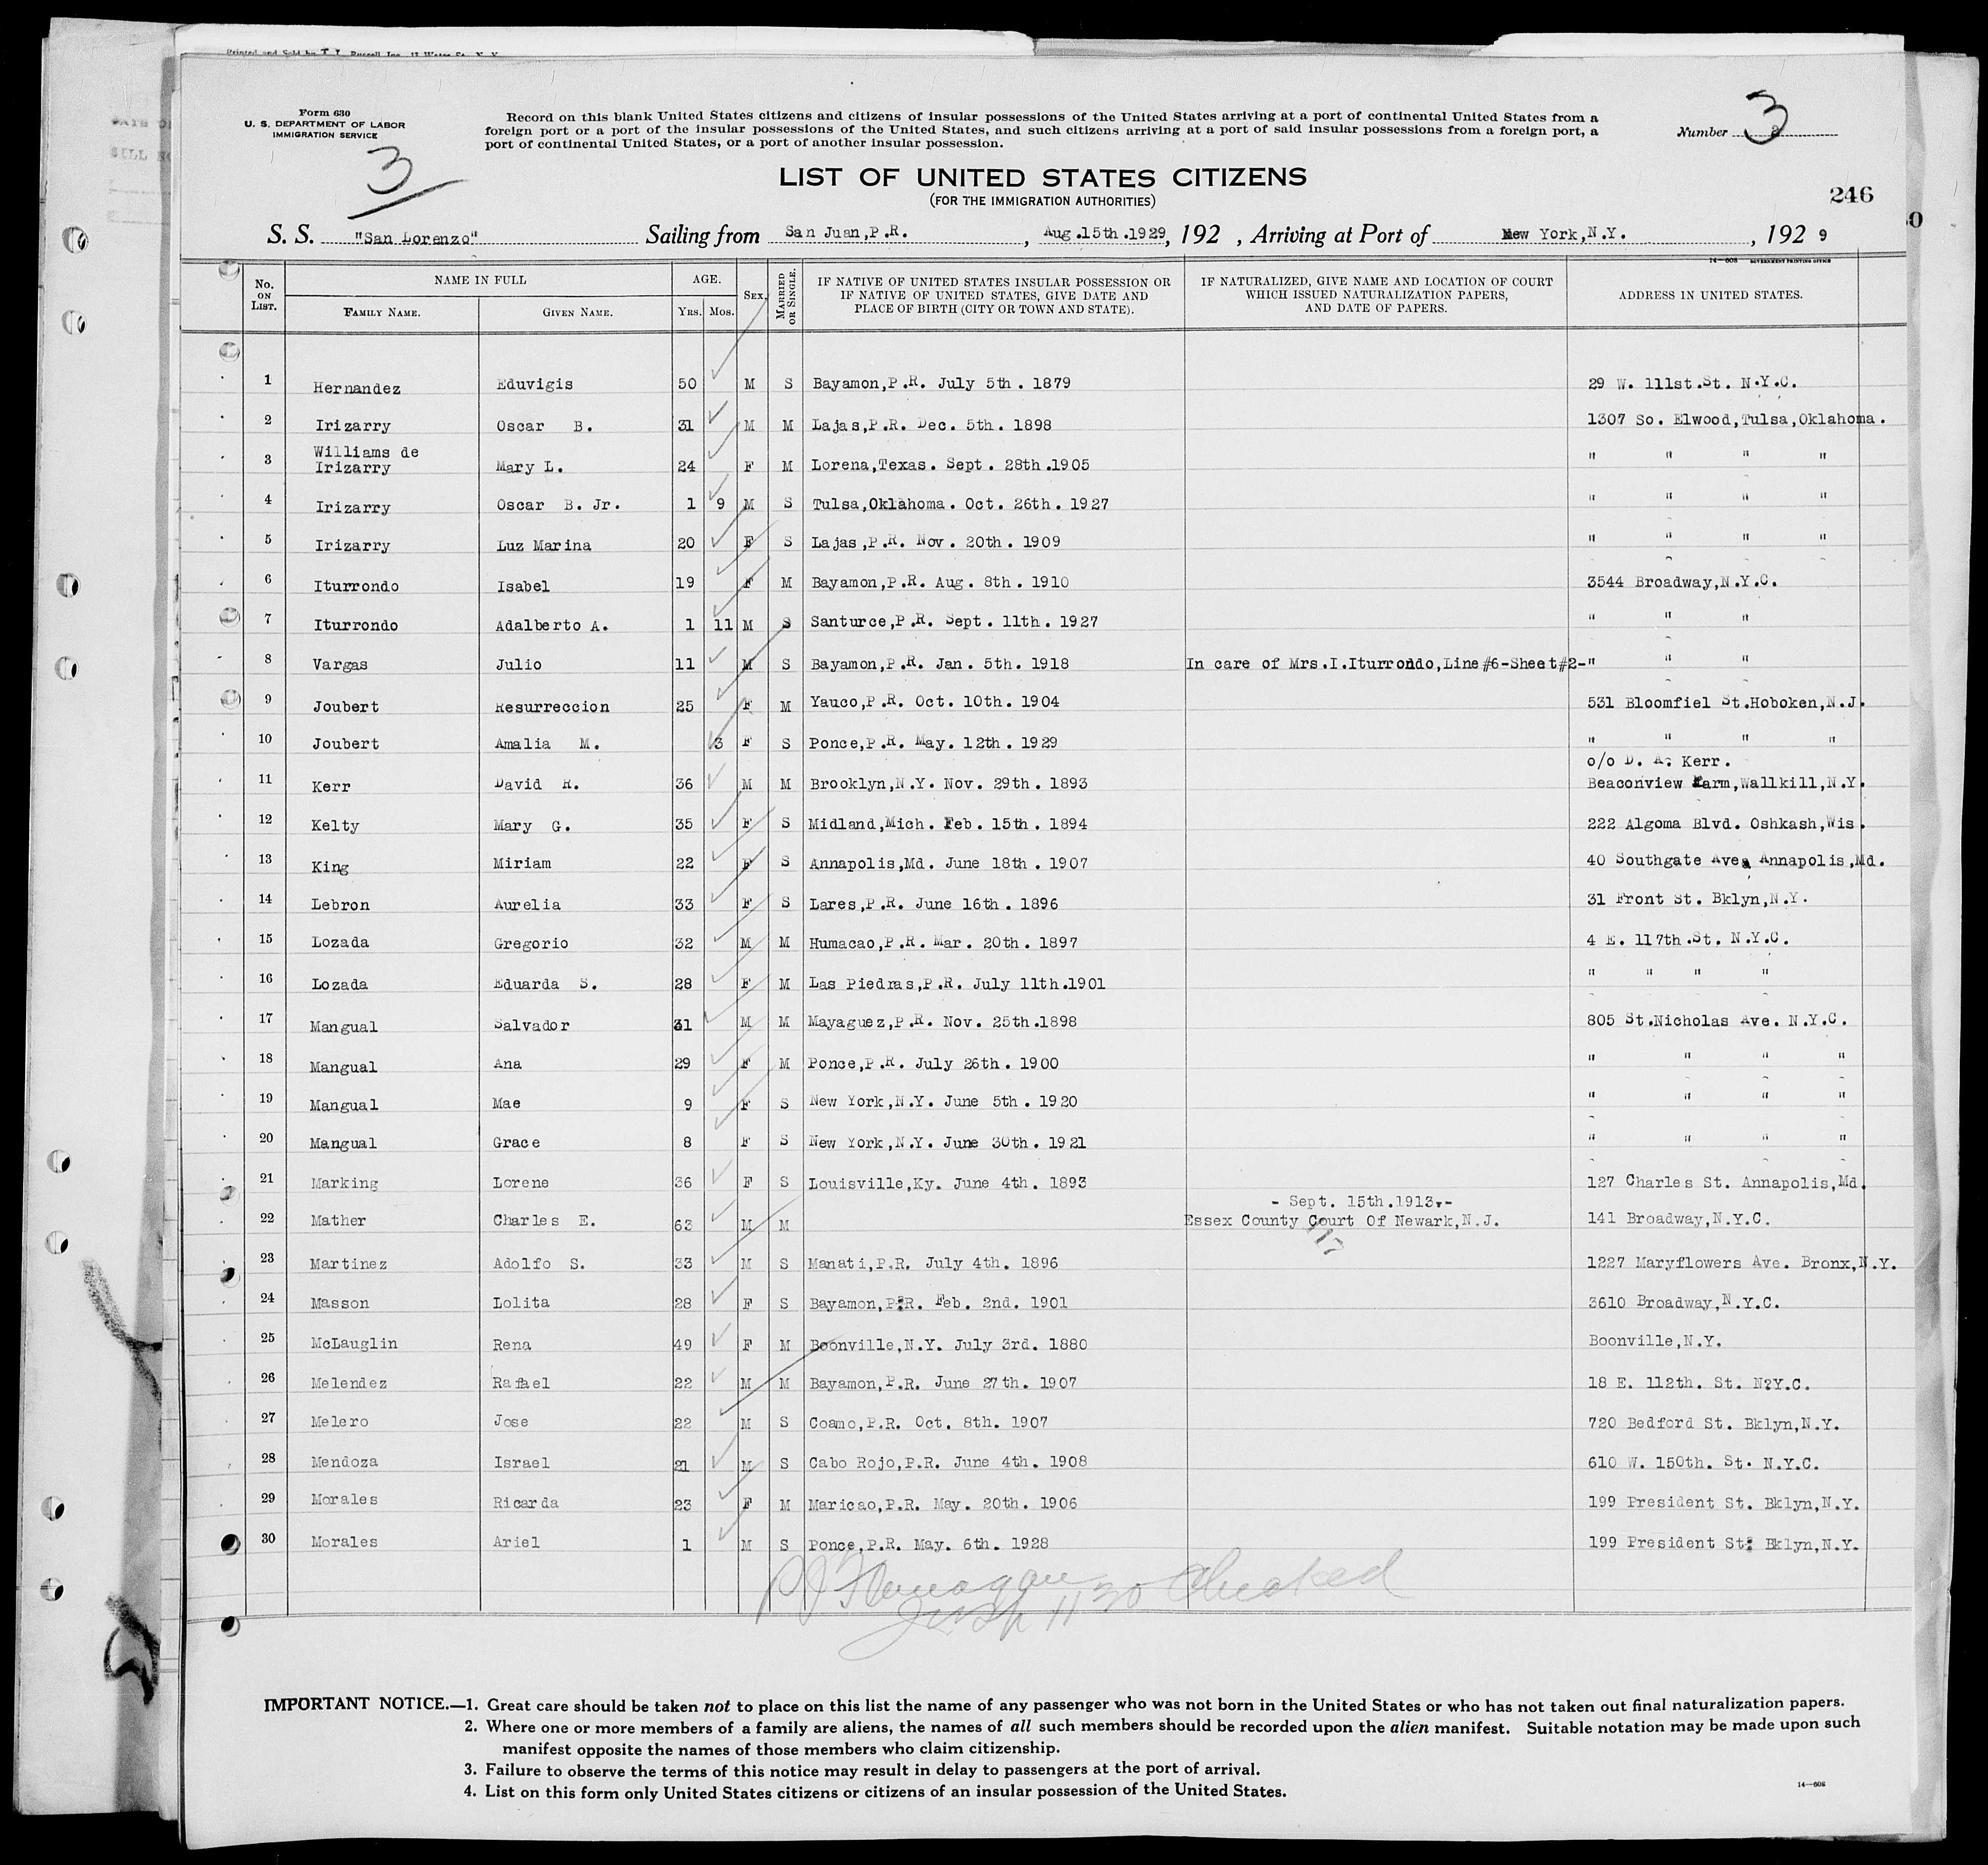 Printed and Sold by T. L. Russell Inc. 17 Water St. N. Y.
Form 630
U. S. DEPARTMENT OF LABOR
IMMIGRATION SERVICE
3
Record on this blank United States citizens and citizens of insular possessions of the United States arriving at a port of continental United States from a
foreign port or a port of the insular possessions of the United States, and such citizens arriving at a port of said insular possessions from a foreign port, a
port of continental United States, or a port of another insular possession.
Number 3
LIST OF UNITED STATES CITIZENS
(FOR THE IMMIGRATION AUTHORITIES)
246
S. S. "San Lorenzo" Sailing from San Juan,P.R. , Aug.15th.1929, 192 , Arriving at Port of New York,N.Y. , 192 9
14—608 GOVERNMENT PRINTING OFFICE
No. ON LIST. NAME IN FULL FAMILY NAME. GIVEN NAME. AGE. YRS. MOS. SEX. MARRIED OR SINGLE. IF NATIVE OF UNITED STATES INSULAR POSSESSION OR IF NATIVE OF UNITED STATES, GIVE DATE AND PLACE OF BIRTH (CITY OR TOWN AND STATE). IF NATURALIZED, GIVE NAME AND LOCATION OF COURT WHICH ISSUED NATURALIZATION PAPERS, AND DATE OF PAPERS. ADDRESS IN UNITED STATES.
1 Hernandez Eduvigis 50 M S Bayamon,P.R. July 5th. 1879 29 W. 111st.St. N.Y.C.
2 Irizarry Oscar B. 31 M M Lajas,P.R. Dec. 5th. 1898 1307 So. Elwood,Tulsa,Oklahoma.
3 Williams de Irizarry Mary L. 24 F M Lorena,Texas. Sept. 28th.1905 " " " "
4 Irizarry Oscar B. Jr. 1 9 M S Tulsa,Oklahoma. Oct. 26th. 1927 " " " "
5 Irizarry Luz Marina 20 F S Lajas,P.R. Nov. 20th. 1909 " " " "
6 Iturrondo Isabel 19 F M Bayamon,P.R. Aug. 8th. 1910 3544 Broadway,N.Y.C.
7 Iturrondo Adalberto A. 1 11 M S Santurce,P.R. Sept. 11th. 1927 " " "
8 Vargas Julio 11 M S Bayamon,P.R. Jan. 5th. 1918 In care of Mrs.I.Iturrondo,Line#6-Sheet#2- " " "
9 Joubert Resurreccion 25 F M Yauco,P.R. Oct. 10th. 1904 531 Bloomfiel St.Hoboken,N.J.
10 Joubert Amalia M. 3 F S Ponce,P.R. May. 12th. 1929 " " " "
c/o D. A. Kerr.
11 Kerr David R. 36 M M Brooklyn,N.Y. Nov. 29th. 1893 Beaconview Farm,Wallkill,N.Y.
12 Kelty Mary G. 35 F S Midland,Mich. Feb. 15th. 1894 222 Algoma Blvd. Oshkash,Wis.
13 King Miriam 22 F S Annapolis,Md. June 18th. 1907 40 Southgate Ave, Annapolis,Md.
14 Lebron Aurelia 33 F S Lares,P.R. June 16th. 1896 31 Front St. Bklyn,N.Y.
15 Lozada Gregorio 32 M M Humacao,P.R. Mar. 20th. 1897 4 E. 117th.St. N.Y.C.
16 Lozada Eduarda S. 28 F M Las Piedras,P.R. July 11th.1901 " " " "
17 Mangual Salvador 31 M M Mayaguez,P.R. Nov. 25th.1898 805 St.Nicholas Ave. N.Y.C.
18 Mangual Ana 29 F M Ponce,P.R. July 26th. 1900 " " " "
19 Mangual Mae 9 F S New York,N.Y. June 5th. 1920 " " " "
20 Mangual Grace 8 F S New York,N.Y. June 30th. 1921 " " " "
21 Marking Lorene 36 F S Louisville,Ky. June 4th. 1893 127 Charles St. Annapolis,Md.
- Sept. 15th.1913.-
22 Mather Charles E. 63 M M Essex County Court Of Newark,N.J. 141 Broadway,N.Y.C.
23 Martinez Adolfo S. 33 M S Manati,P.R. July 4th. 1896 1227 Maryflowers Ave. Bronx,N.Y.
24 Masson Lolita 28 F S Bayamon,P.R. Feb. 2nd. 1901 3610 Broadway,N.Y.C.
25 McLauglin Rena 49 F M Boonville,N.Y. July 3rd. 1880 Boonville,N.Y.
26 Melendez Rafael 22 M M Bayamon,P.R. June 27th. 1907 18 E. 112th. St. N?Y.C.
27 Melero Jose 22 M S Coamo,P.R. Oct. 8th. 1907 720 Bedford St. Bklyn,N.Y.
28 Mendoza Israel 21 M S Cabo Rojo,P.R. June 4th. 1908 610 W. 150th. St. N.Y.C.
29 Morales Ricarda 23 F M Maricao,P.R. May. 20th. 1906 199 President St. Bklyn,N.Y.
30 Morales Ariel 1 M S Ponce,P.R. May. 6th. 1928 199 President St: Bklyn,N.Y.
Flanagan 30 Checked
IMPORTANT NOTICE.—1. Great care should be taken not to place on this list the name of any passenger who was not born in the United States or who has not taken out final naturalization papers.
2. Where one or more members of a family are aliens, the names of all such members should be recorded upon the alien manifest. Suitable notation may be made upon such
manifest opposite the names of those members who claim citizenship.
3. Failure to observe the terms of this notice may result in delay to passengers at the port of arrival.
4. List on this form only United States citizens or citizens of an insular possession of the United States.
14—608